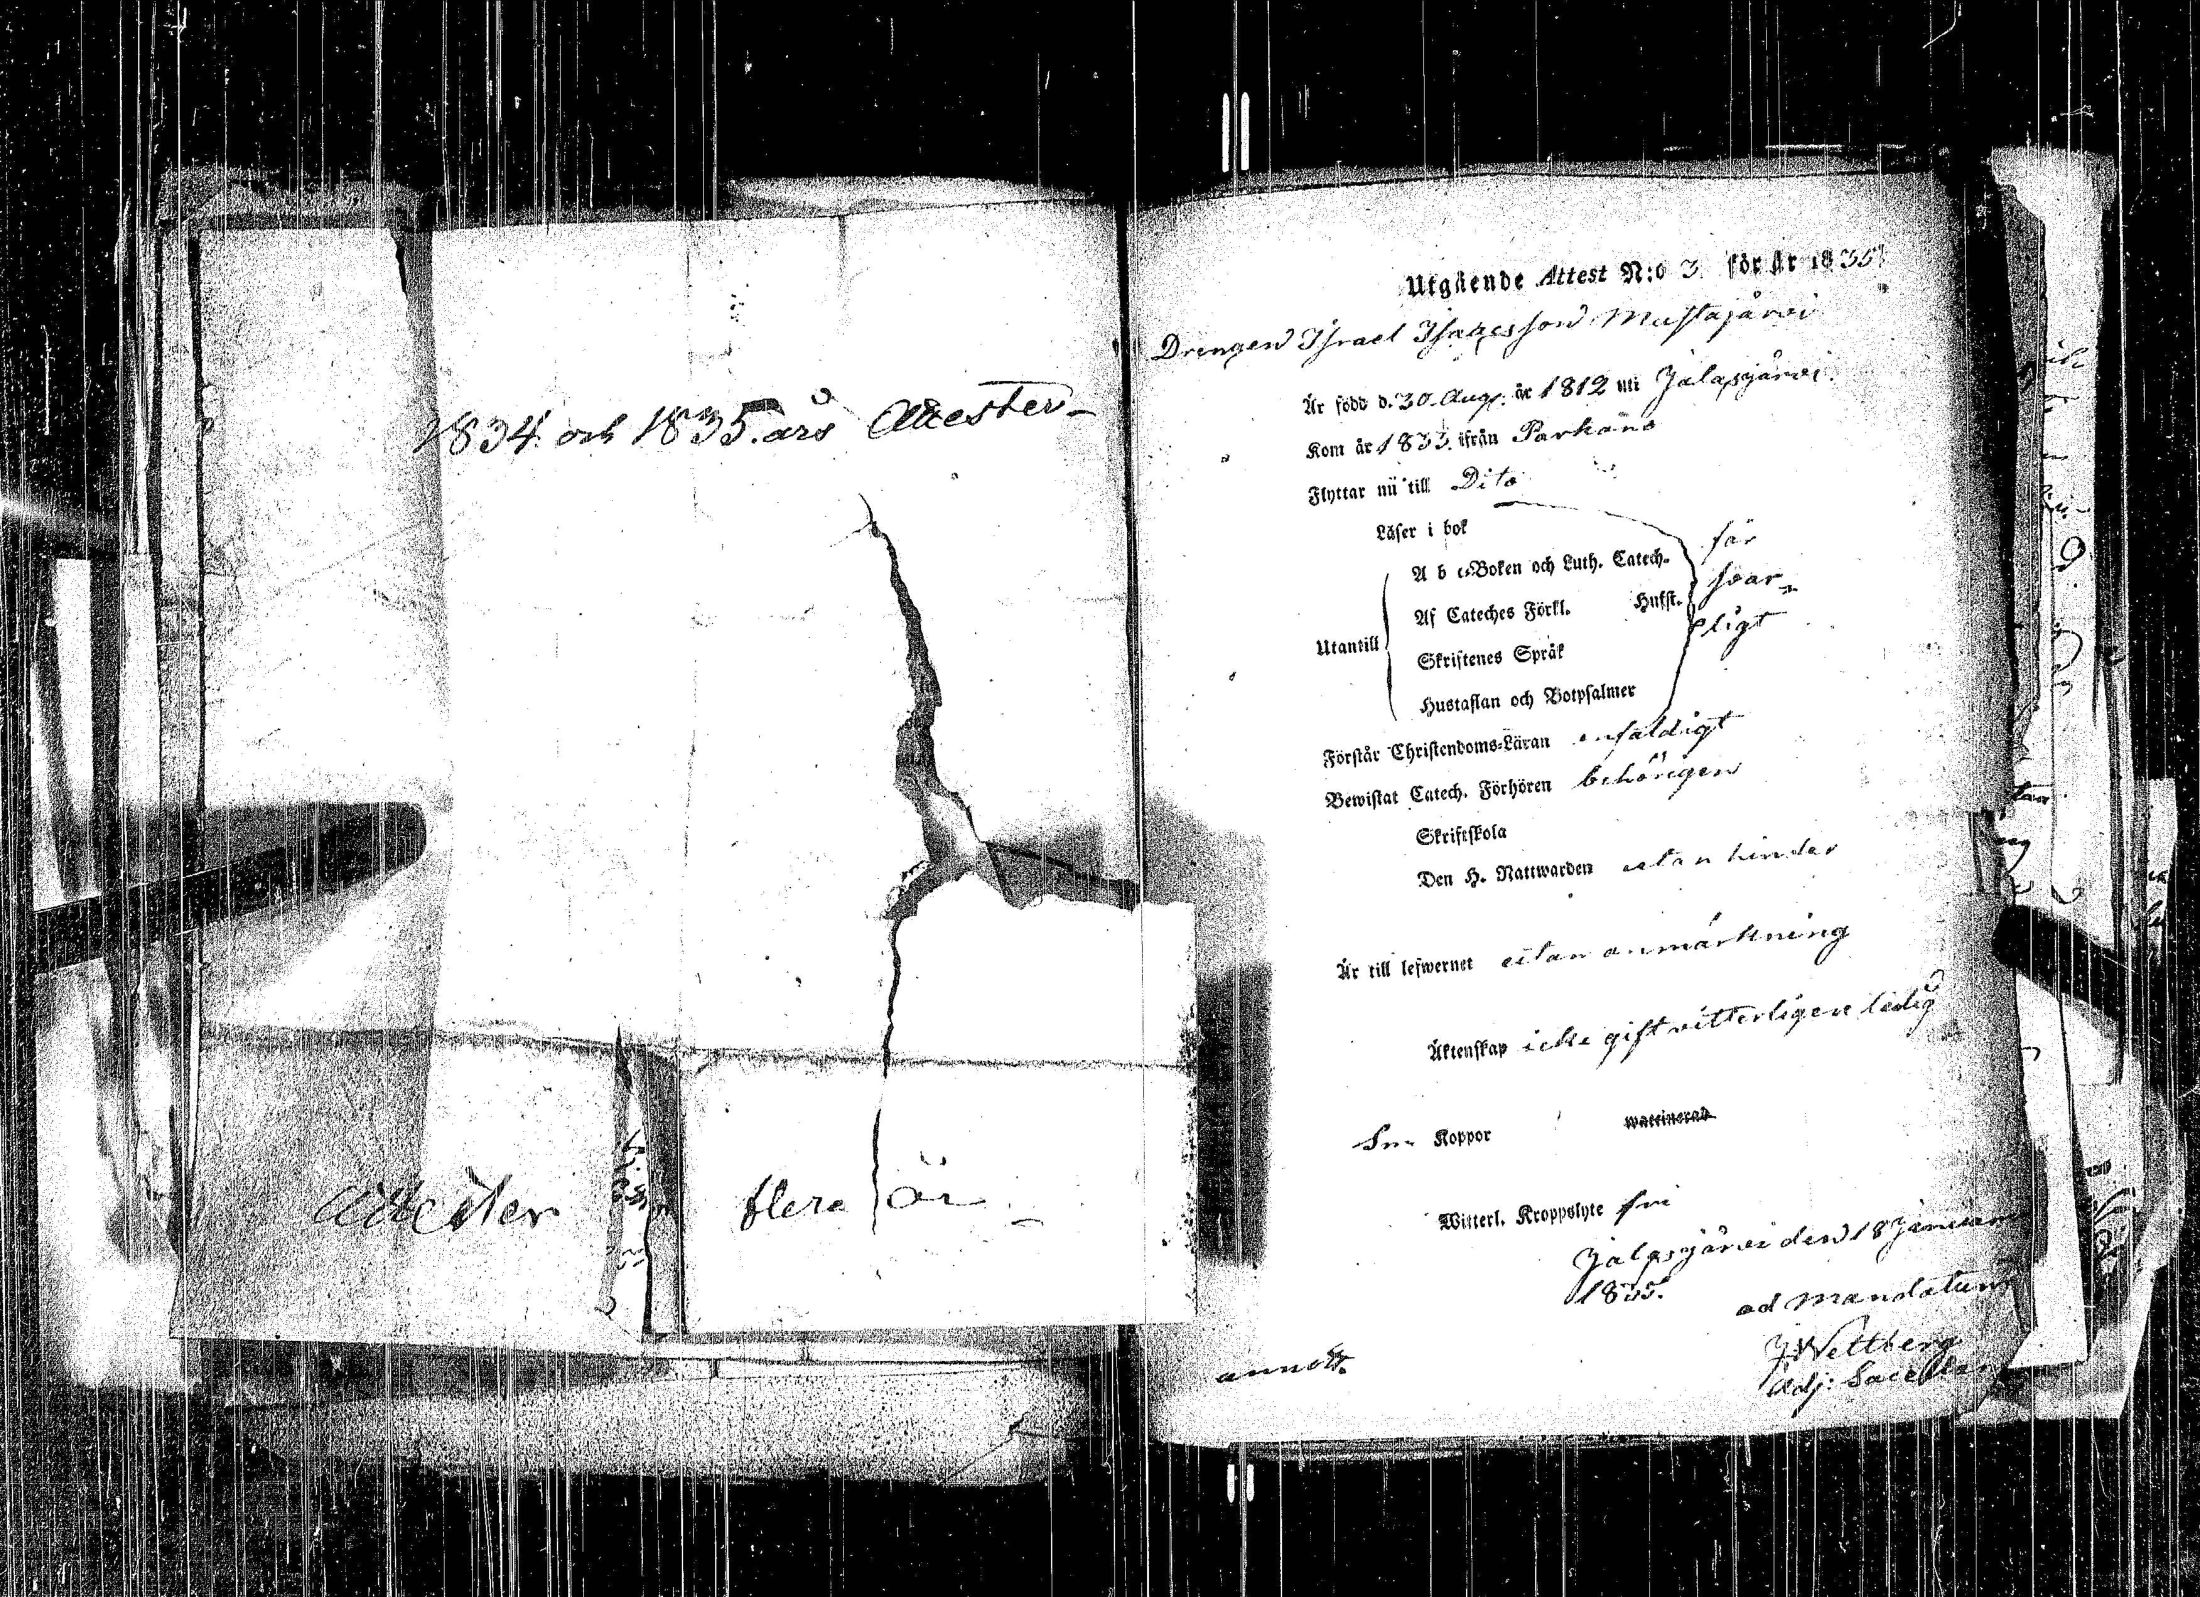 1834. och 1835. års Attester
Attester flera år
Utgående Attest N:o 3 för År 1835.
Drengen Israel Isaacsson Mustajärvi
Är född d. 30 Aug. år 1812 uti Jalasjärvi.
Kom år 1833. ifrån Parkano
Flyttar nu till Dito
Läser i bok
A b c-Boken och Luth. Catech.
Af Cateches Förkl. Hufst.
Utantill
Skriftenes Språk
Hustaflan och Botpsalmer
för
svar-
ligt
Förstår Christendoms-Läran enfaldigt
Bewistat Catech. Förhören behörigen
Skriftskola
Den H. Nattwarden utan hinder
Är till lefwernet utan anmärkning
Äktenskap icke gift vitterligen ledig
Koppor waccinerad
Witterl. Kroppslyte fri
Jalasjärvi den 18 Januari
1835.
ad mandatum
J Wettberg
Adj: Sacellan
annot.